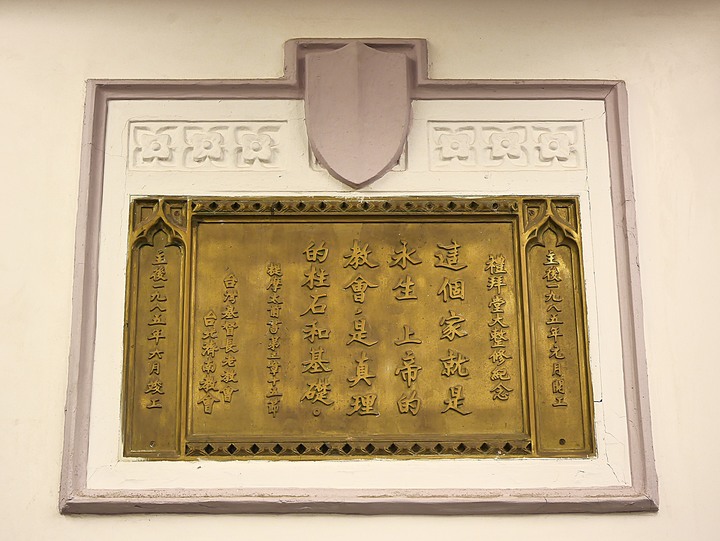 主後一九八五年元月開工
禮拜堂大整修紀念
這個家就是
永生上帝的
教會,是真理
的柱石和基礎。
提摩太前書第三章十五節
台湾基督長老教會
台北濟南教會
主後一九八五年六月竣工